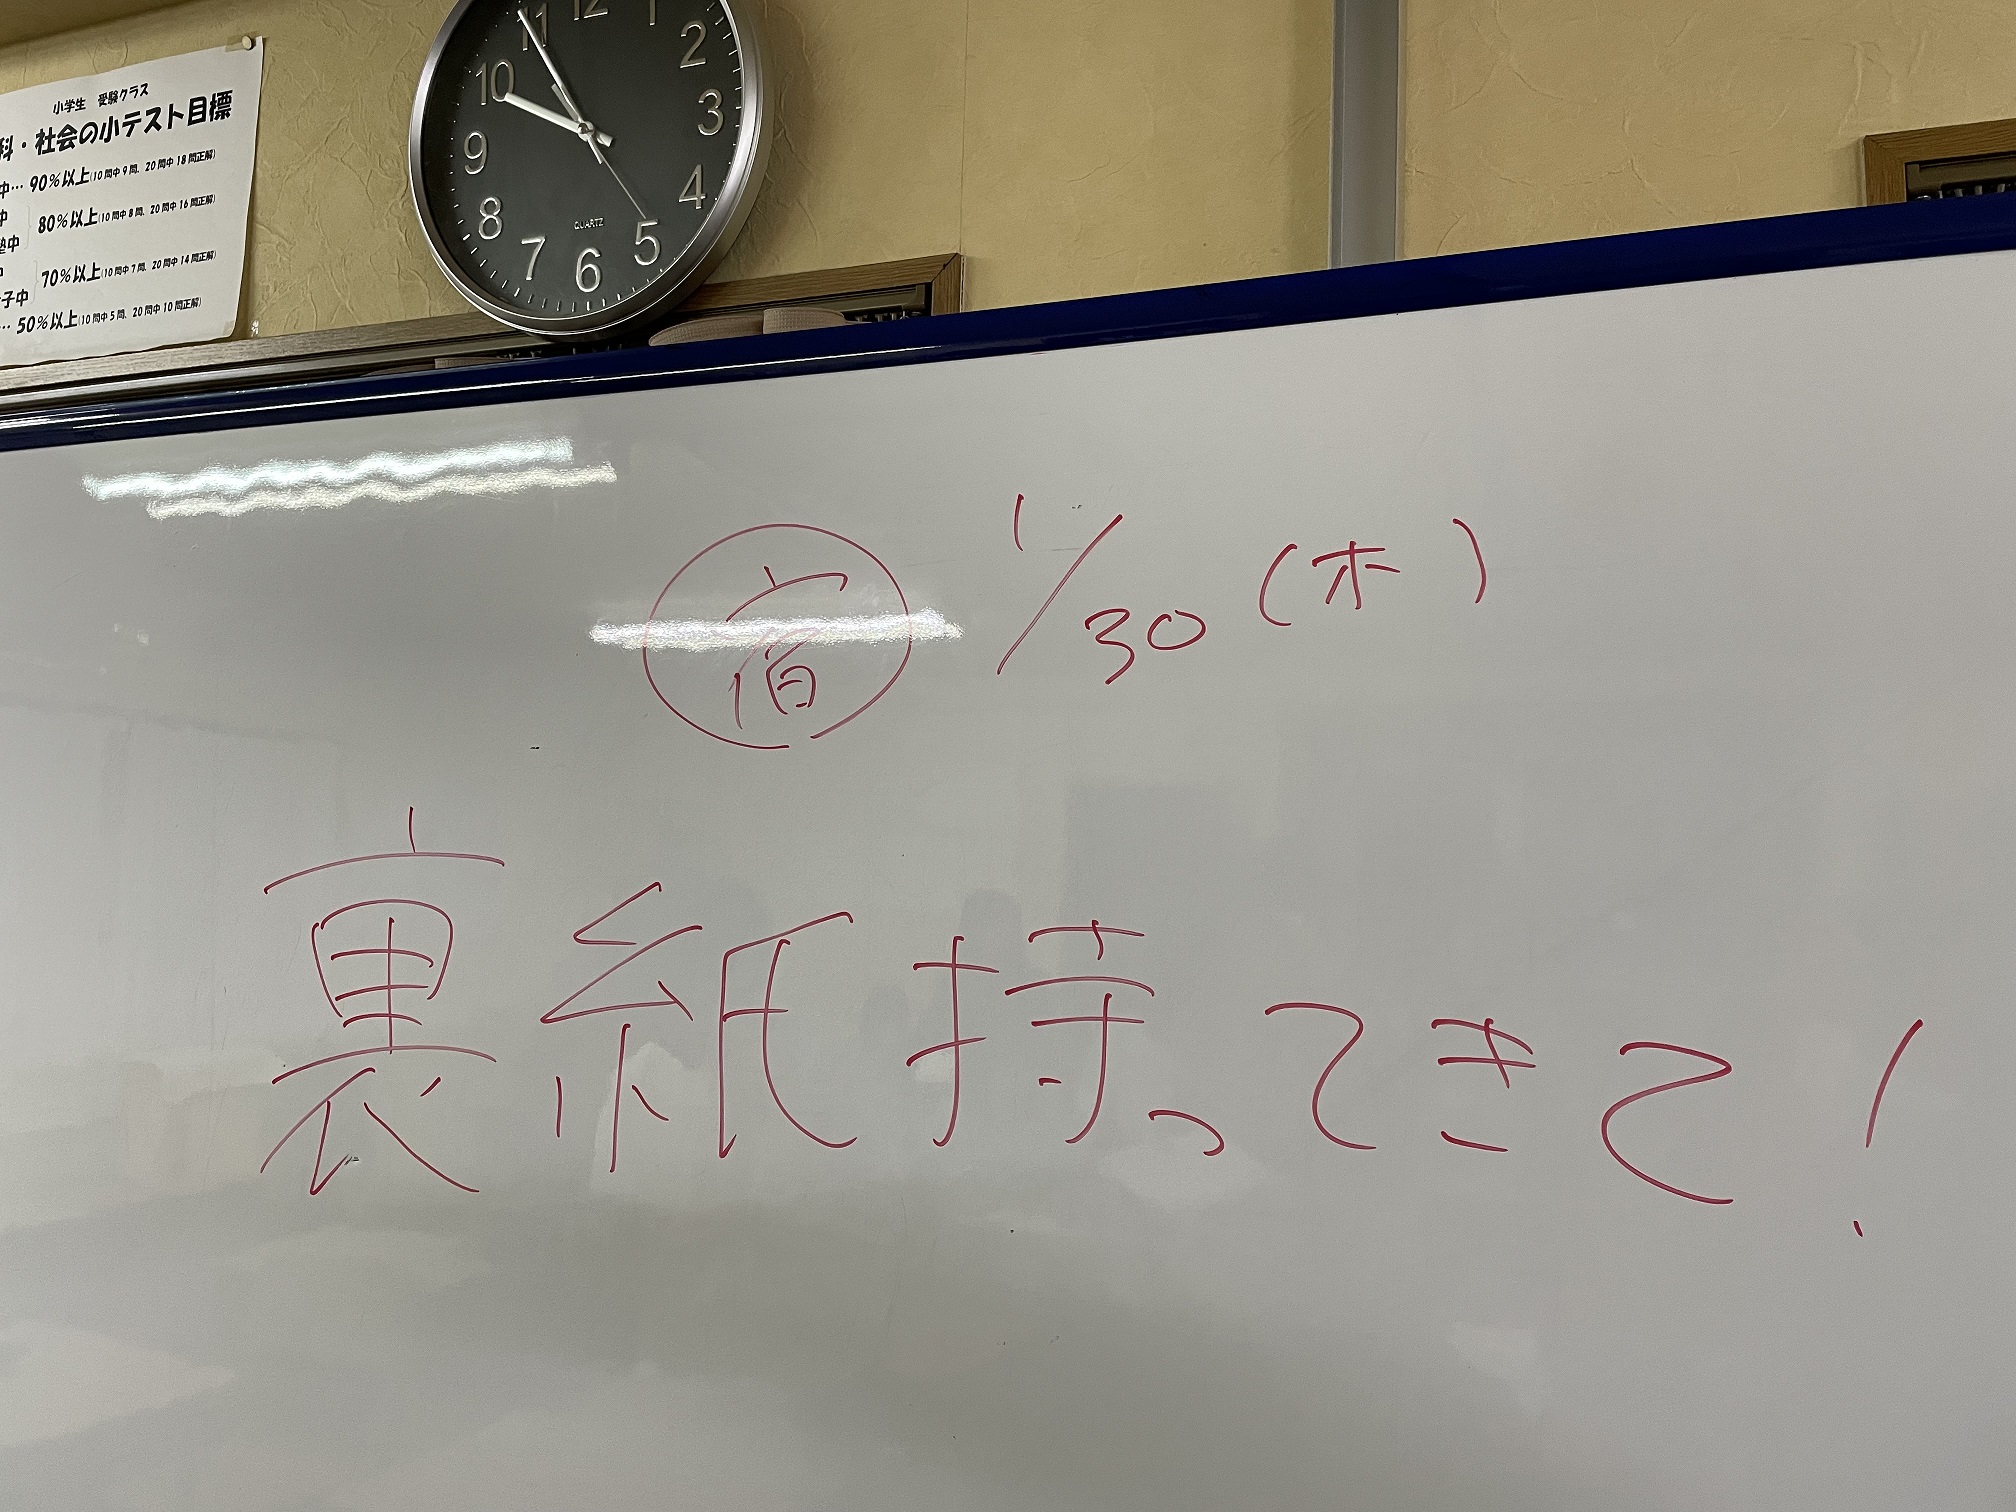 小学生 受験クラス
科・社会の小テスト目標
中… 90%以上(10問中9問、20問中18問正解)
中
80%以上(10問中8問、20問中16問正解)
塾中
70%以上(10問中7問、20問中14問正解)
子中
… 50%以上(10問中5問、20問中10問正解)
11 12 1
10 2
9 3
8 4
7 6 5
QUARTZ
宿 1/30(木)
裏紙持ってきて!